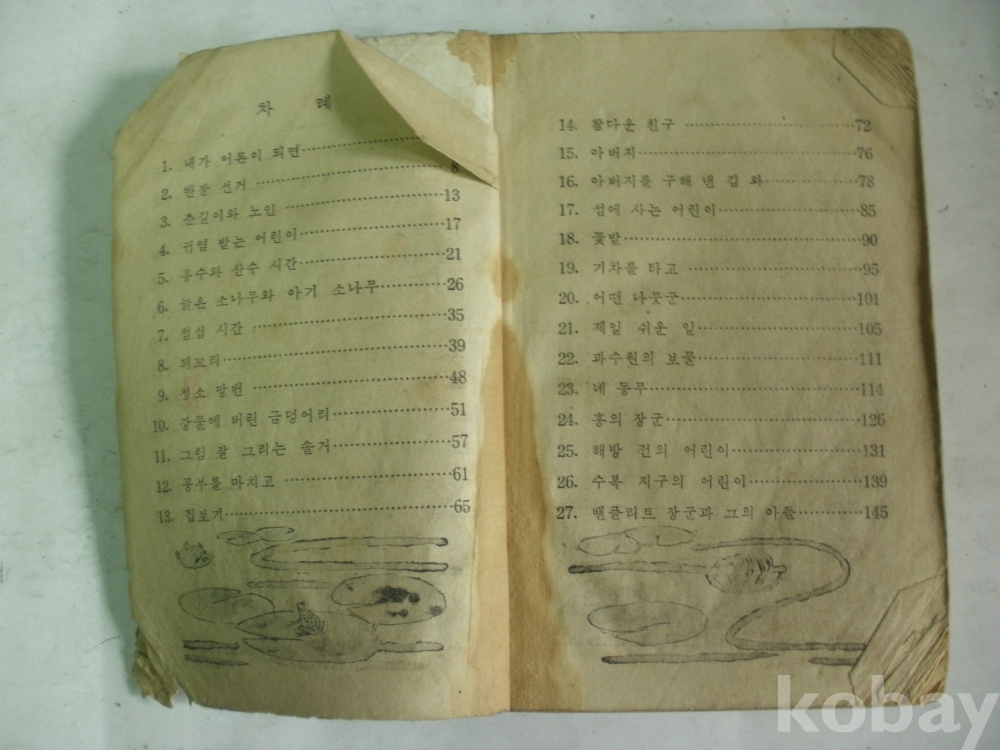 차 례
1. 내가 어른이 되면
2. 반장 선거 8
3. 춘길이와 노인 13
4. 귀염 받는 어린이 17
5. 용수와 산수 시간 21
6. 늙은 소나무와 아기 소나무 26
7. 점심 시간 35
8. 꾀꼬리 39
9. 청소 당번 48
10. 강물에 버린 금덩어리 51
11. 그림 잘 그리는 솔거 57
12. 공부를 마치고 61
13. 집보기 65
14. 참다운 친구 72
15. 아버지 76
16. 아버지를 구해 낸 김 와 78
17. 섬에 사는 어린이 85
18. 꽃밭 90
19. 기차를 타고 95
20. 어떤 나뭇군 101
21. 제일 쉬운 일 105
22. 과수원의 보물 111
23. 네 동무 114
24. 흥의 장군 126
25. 해방 전의 어린이 131
26. 수복 지구의 어린이 139
27. 밴플리트 장군과 그의 아들 145
kobay